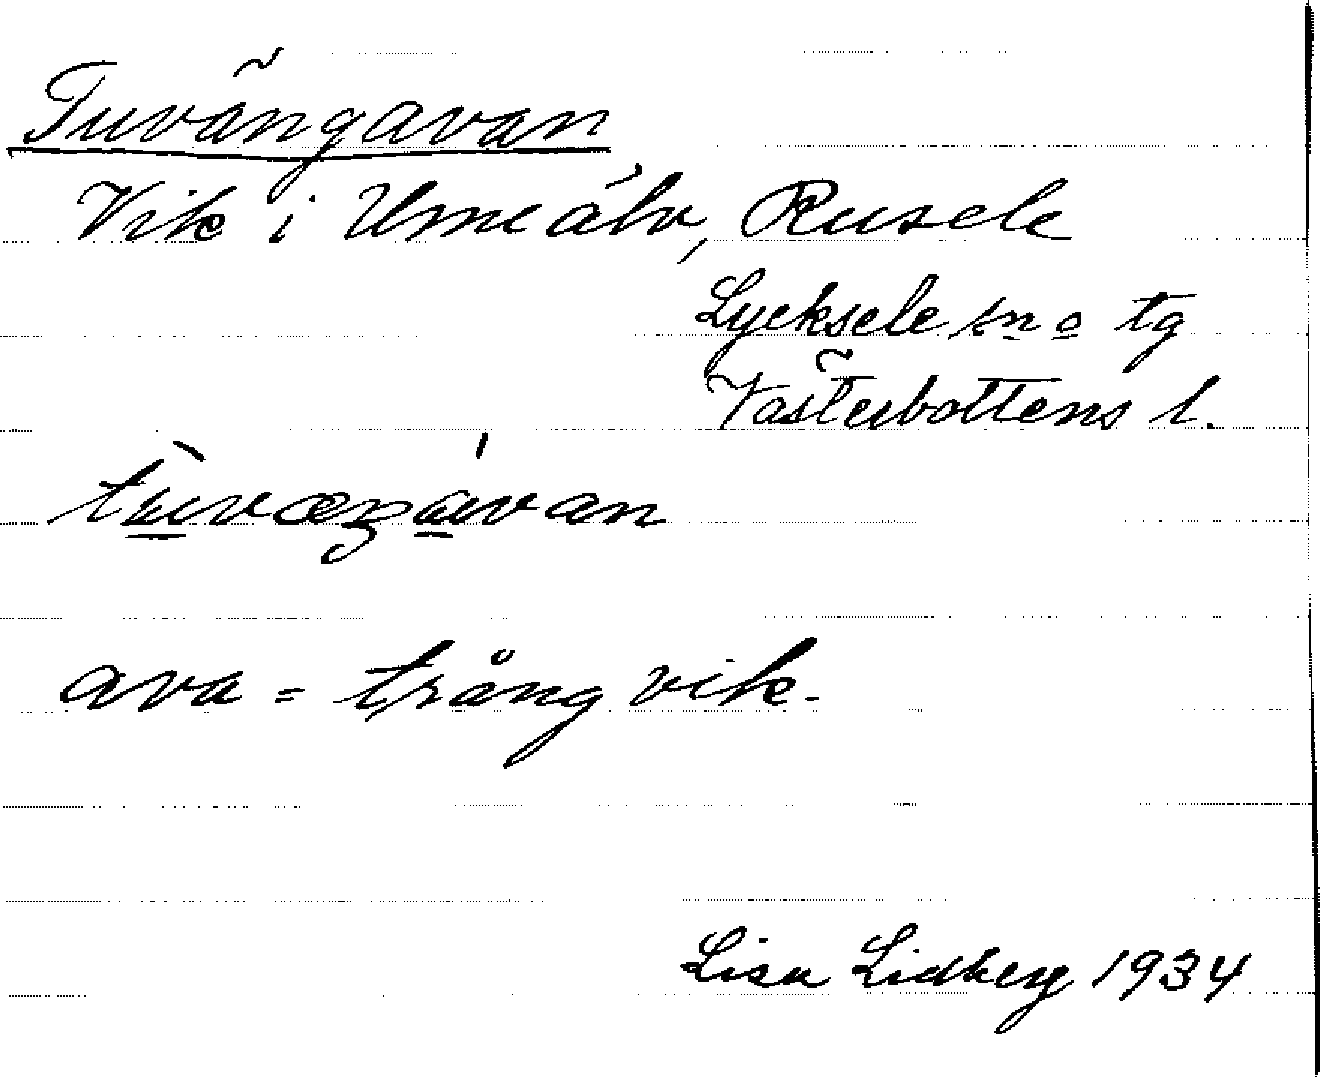 Tuvängavan
Vik i Umeälv, Rusele
Lycksele sn o tg
Västerbottens l.
t̀u̲væŋá̲van
ava = trång vik.
Lisa Lidberg 1934